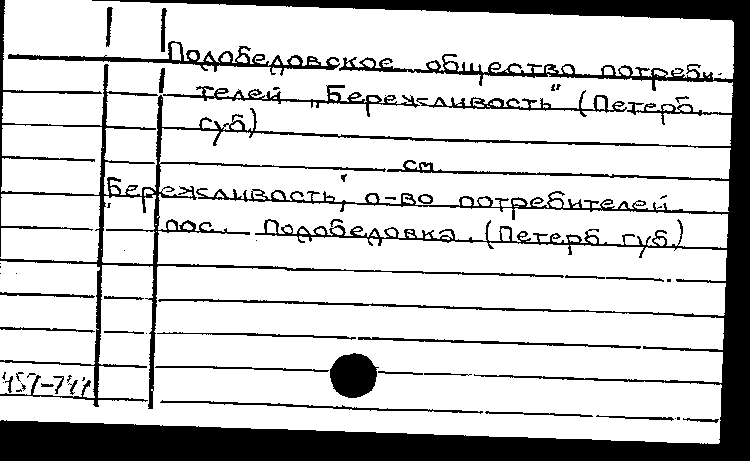 Подобедовское общество потреби-
телей „Бережливость" (Петерб.
губ.)
см.
„Бережливость", о-во потребителей
пос. Подобедовка. (Петерб. губ.)